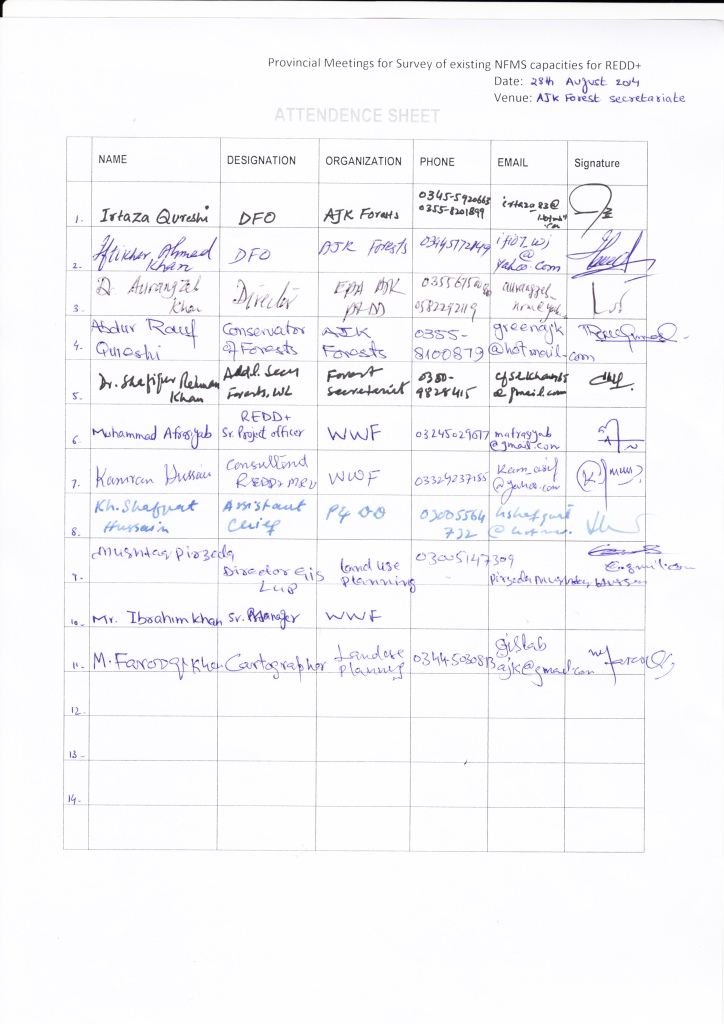 Provincial Meetings for Survey of existing NFMS capacities for REDD+
Date: 28th August 2014
Venue: AJK Forest secretariate
ATTENDENCE SHEET
NAME DESIGNATION ORGANIZATION PHONE EMAIL Signature
1. Irtaza Qureshi DFO AJK Forests 0345-5920665 0355-8201899 irtaza83@
2. Iftikhar Ahmad Khan DFO AJK Forests @ yahoo.com
3. Aurangzeb Khan Director EPA AJK
4. Abdur Rauf Qureshi Conservator of Forests AJK Forests 0355-8100879 greenajk @hotmail.com
5. Dr. Shafiqur Rehman Khan Addl. Secy Forests, WL Forest secretariet 9828415 @gmail.com
6. Muhammad Afrasiyab REDD+ Sr. Project officer WWF 03245029617 mafrasyab @gmail.com
7. Kamran Hussain REDD+ MRV WWF 03329237155 @yahoo.com
8. Kh. Shafquat Hussain Assistant Chief 03005564 722
9. Mushtaq Pirzada Director GIS LUP land use planning 03005147309
10. Mr. Ibrahim Khan Sr. Manager WWF
11. M. Farooq Khan Cartographer Landuse planning gislab ajk@gmail.com
12.
13 -
14.